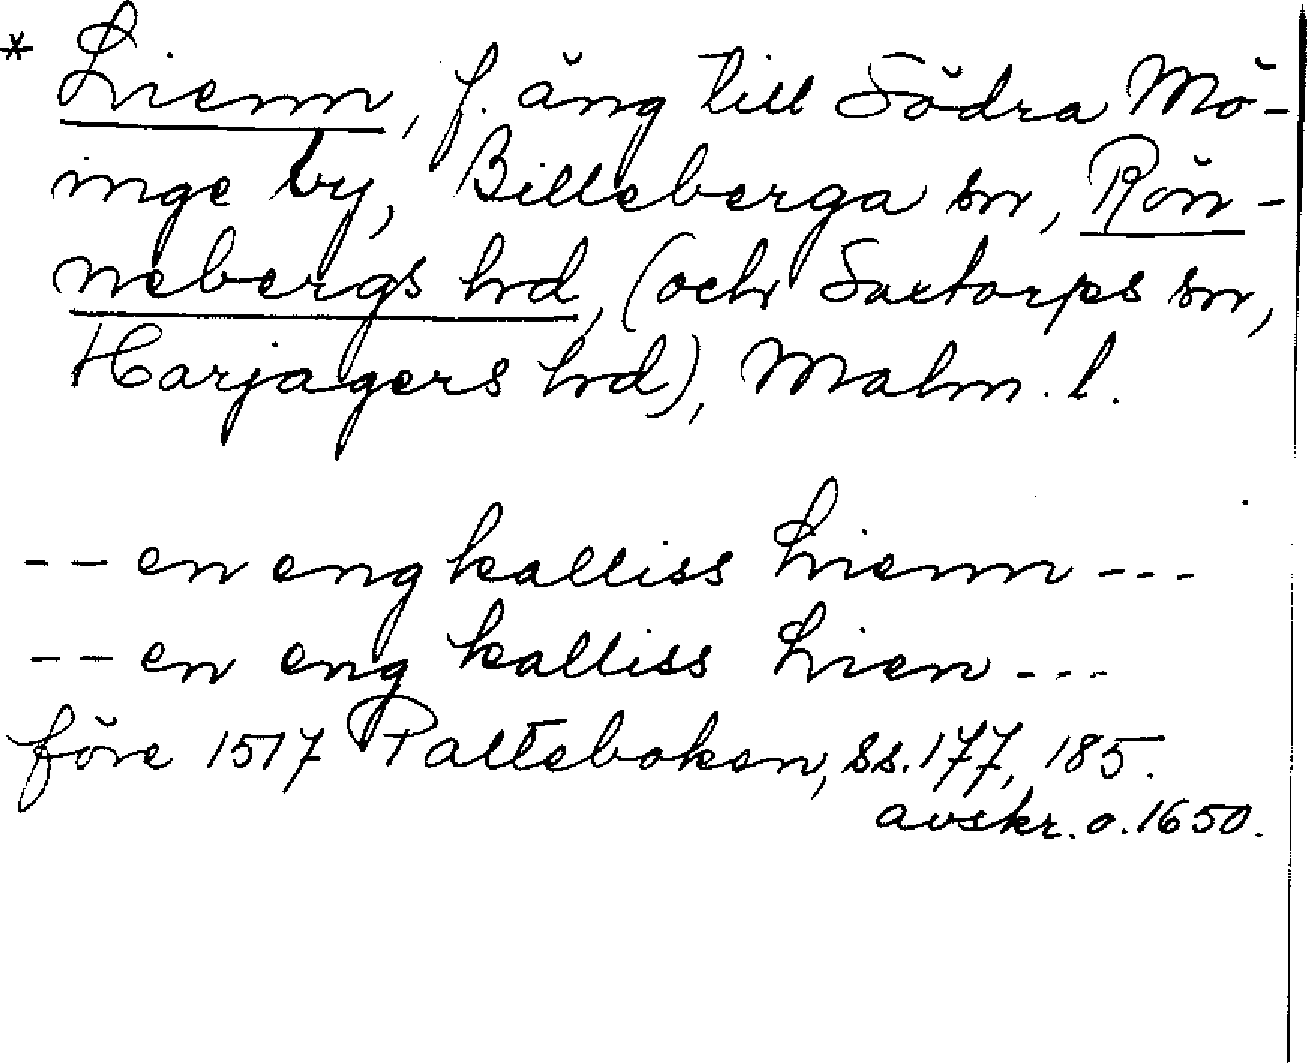 * Lienn, f. äng till Södra Mö-
inge by, Billeberga sn, Rön-
nebergs hrd, (och Saxtorps sn,
Harjagers hrd), Malm. l.
-- en eng kalliss Lienn ---
-- en eng kalliss Lien ---
före 1517 Palteboken, ss. 177, 185.
avskr. o. 1650.